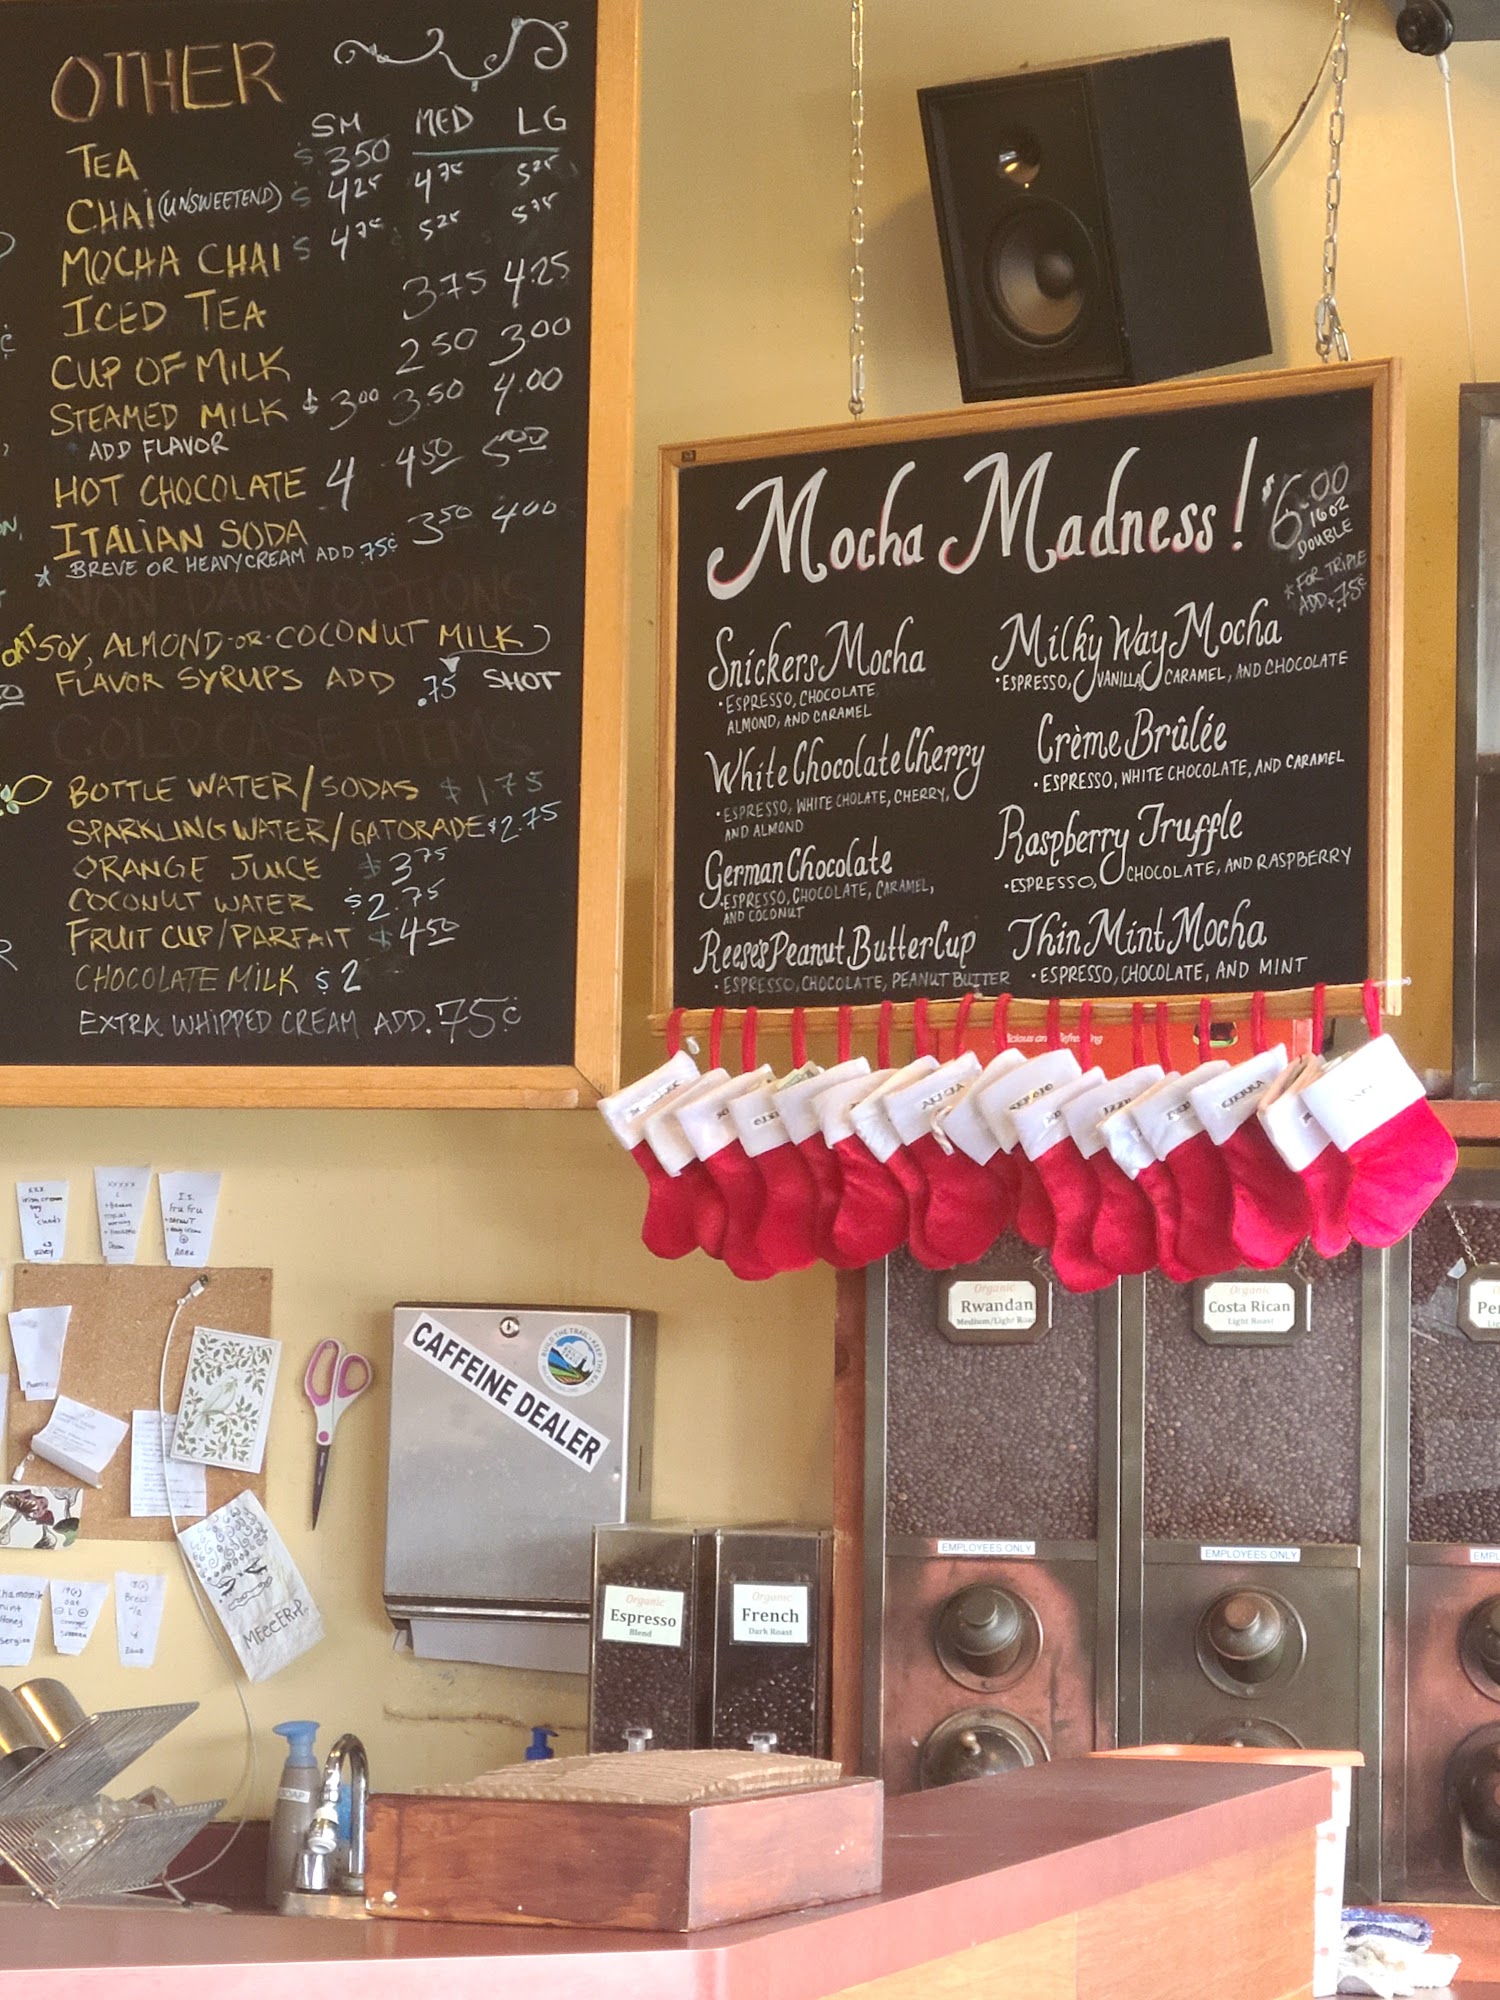 OTHER
SM MED LG
TEA $ 3.50
CHAI (UNSWEETEND) $ 4.25 4.75 5.25
MOCHA CHAI $ 4.75 5.25 5.75
ICED TEA 3.75 4.25
CUP OF MILK 2.50 3.00
STEAMED MILK $3.00 3.50 4.00
ADD FLAVOR
HOT CHOCOLATE 4 4.50 5.00
ITALIAN SODA 3.50 4.00
* BREVE OR HEAVY CREAM ADD .75¢
NON DAIRY OPTIONS
OAT SOY, ALMOND-OR-COCONUT MILK
FLAVOR SYRUPS ADD .75 SHOT
COLD CASE ITEMS
BOTTLE WATER/SODAS $1.75
SPARKLING WATER/GATORADE $2.75
ORANGE JUICE $3.75
COCONUT WATER $2.75
FRUIT CUP/PARFAIT $4.50
CHOCOLATE MILK $2
EXTRA WHIPPED CREAM ADD .75¢
Mocha Madness! $6.00
16oz
DOUBLE
* FOR TRIPLE
ADD +.75¢
Snickers Mocha
• ESPRESSO, CHOCOLATE
ALMOND, AND CARAMEL
White Chocolate Cherry
• ESPRESSO, WHITE CHOLATE, CHERRY,
AND ALMOND
German Chocolate
• ESPRESSO, CHOCOLATE, CARAMEL,
AND COCONUT
Reese's Peanut Butter Cup
• ESPRESSO, CHOCOLATE, PEANUT BUTTER
Milky Way Mocha
• ESPRESSO, VANILLA, CARAMEL, AND CHOCOLATE
Crème Brûlée
• ESPRESSO, WHITE CHOCOLATE, AND CARAMEL
Raspberry Truffle
• ESPRESSO, CHOCOLATE, AND RASPBERRY
Thin Mint Mocha
• ESPRESSO, CHOCOLATE, AND MINT
ALICIA
SERGIO
IZZY
CIERRA
Organic
Rwandan
Medium/Light Roast
Organic
Costa Rican
Light Roast
EMPLOYEES ONLY
EMPLOYEES ONLY
CAFFEINE DEALER
BUILD THE TRAIL • KEEP THE
Organic
Espresso
Blend
Organic
French
Dark Roast
MEeCERrP
SOAP